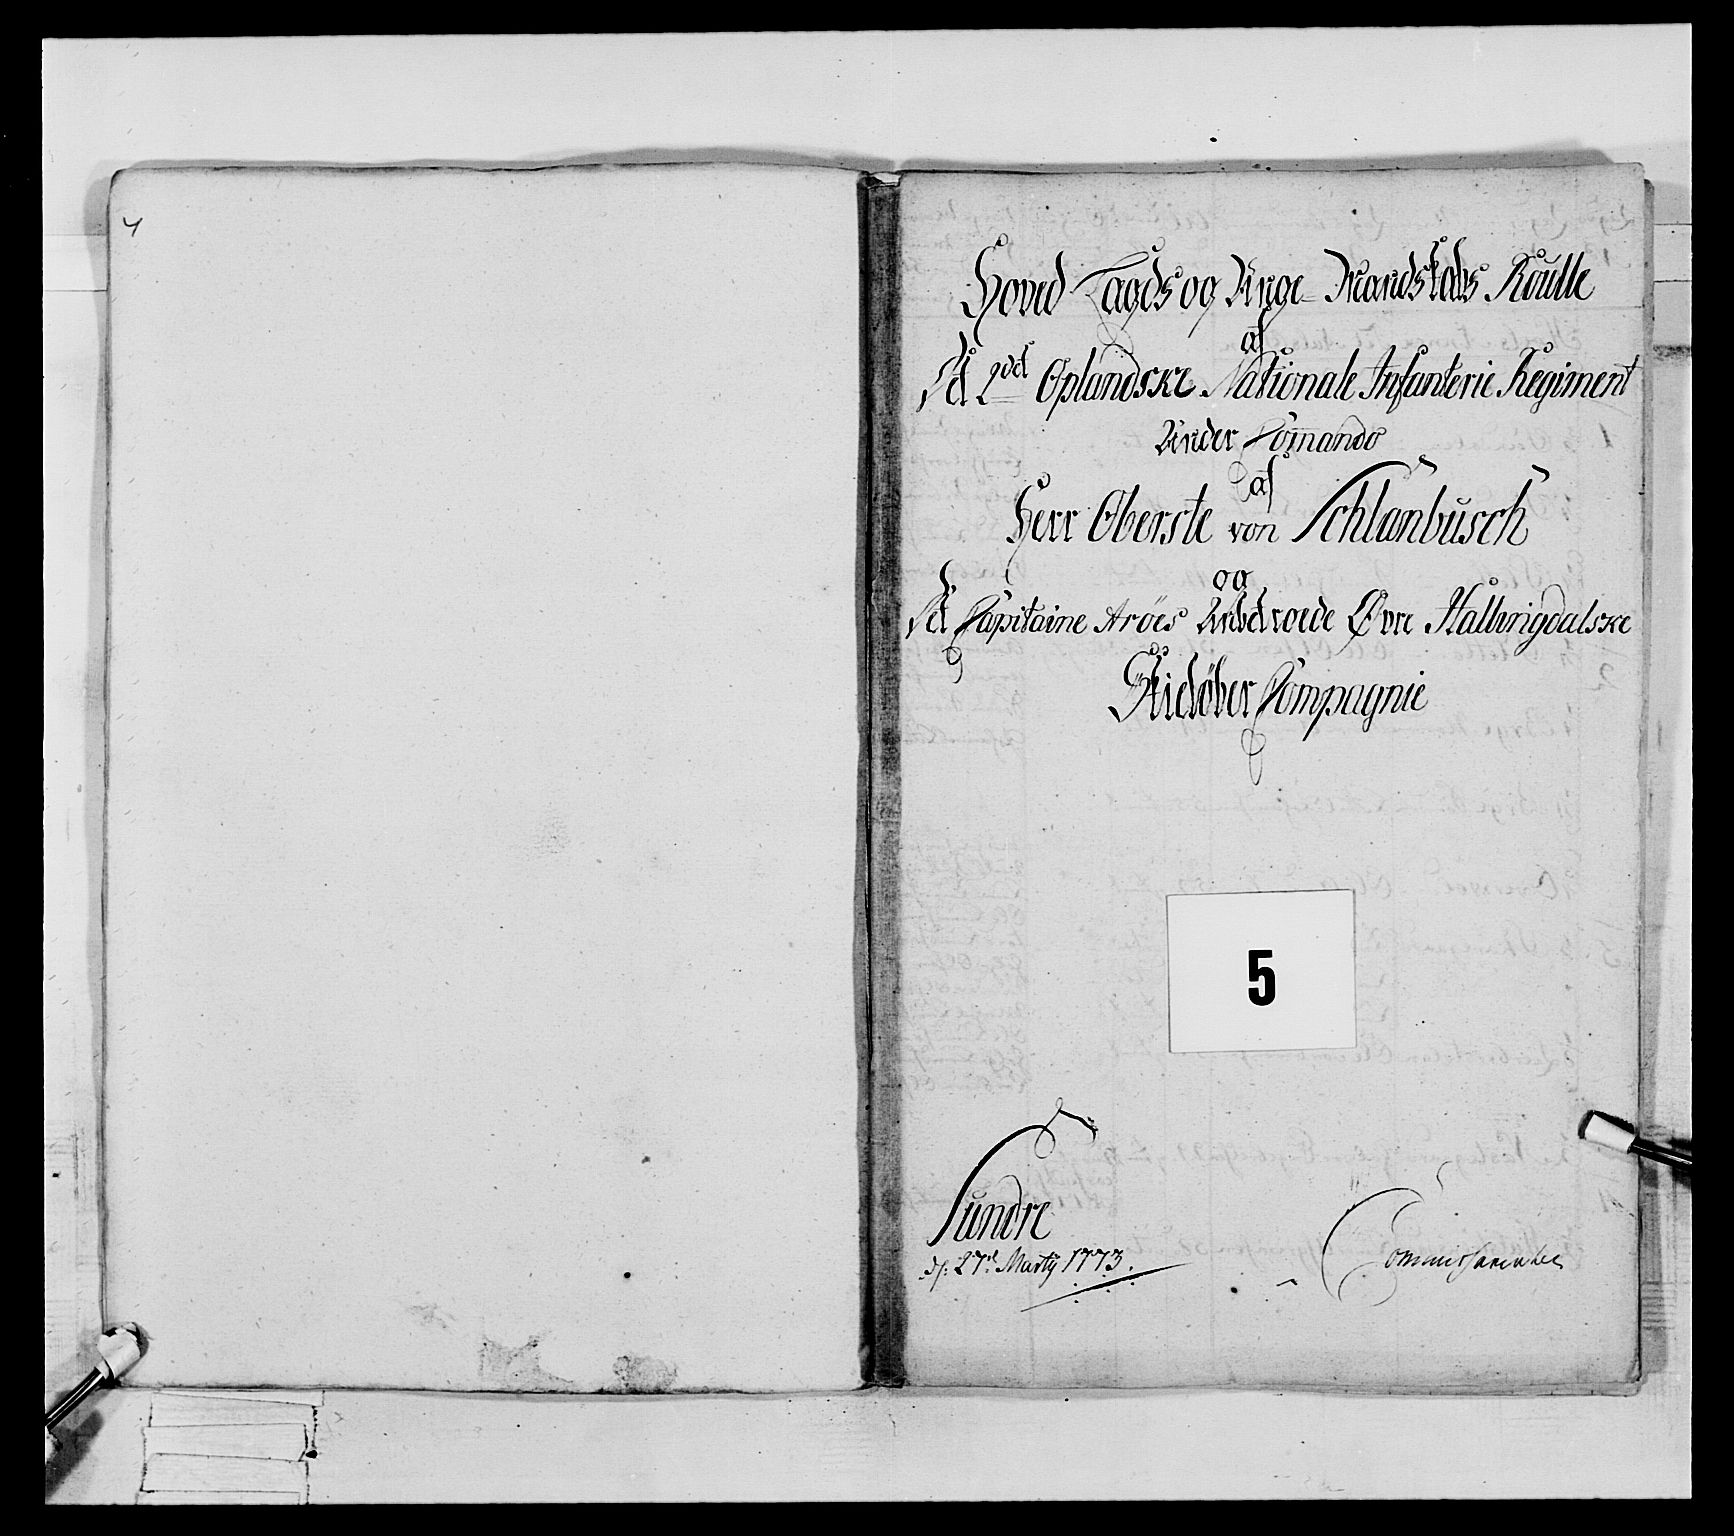 Hoved Lagds og Unge Mandskabs Roulle
af
Det 2det Oplandske Nationale Infanterie Regiment
Under Comando
af
Herr Oberste von Schlanbusch
og
Det Capitaine Aröes Anbetroede Øvre Hallingdalske
Skielöber Compagnie
5
Sundre
d: 27d Marty 1773.